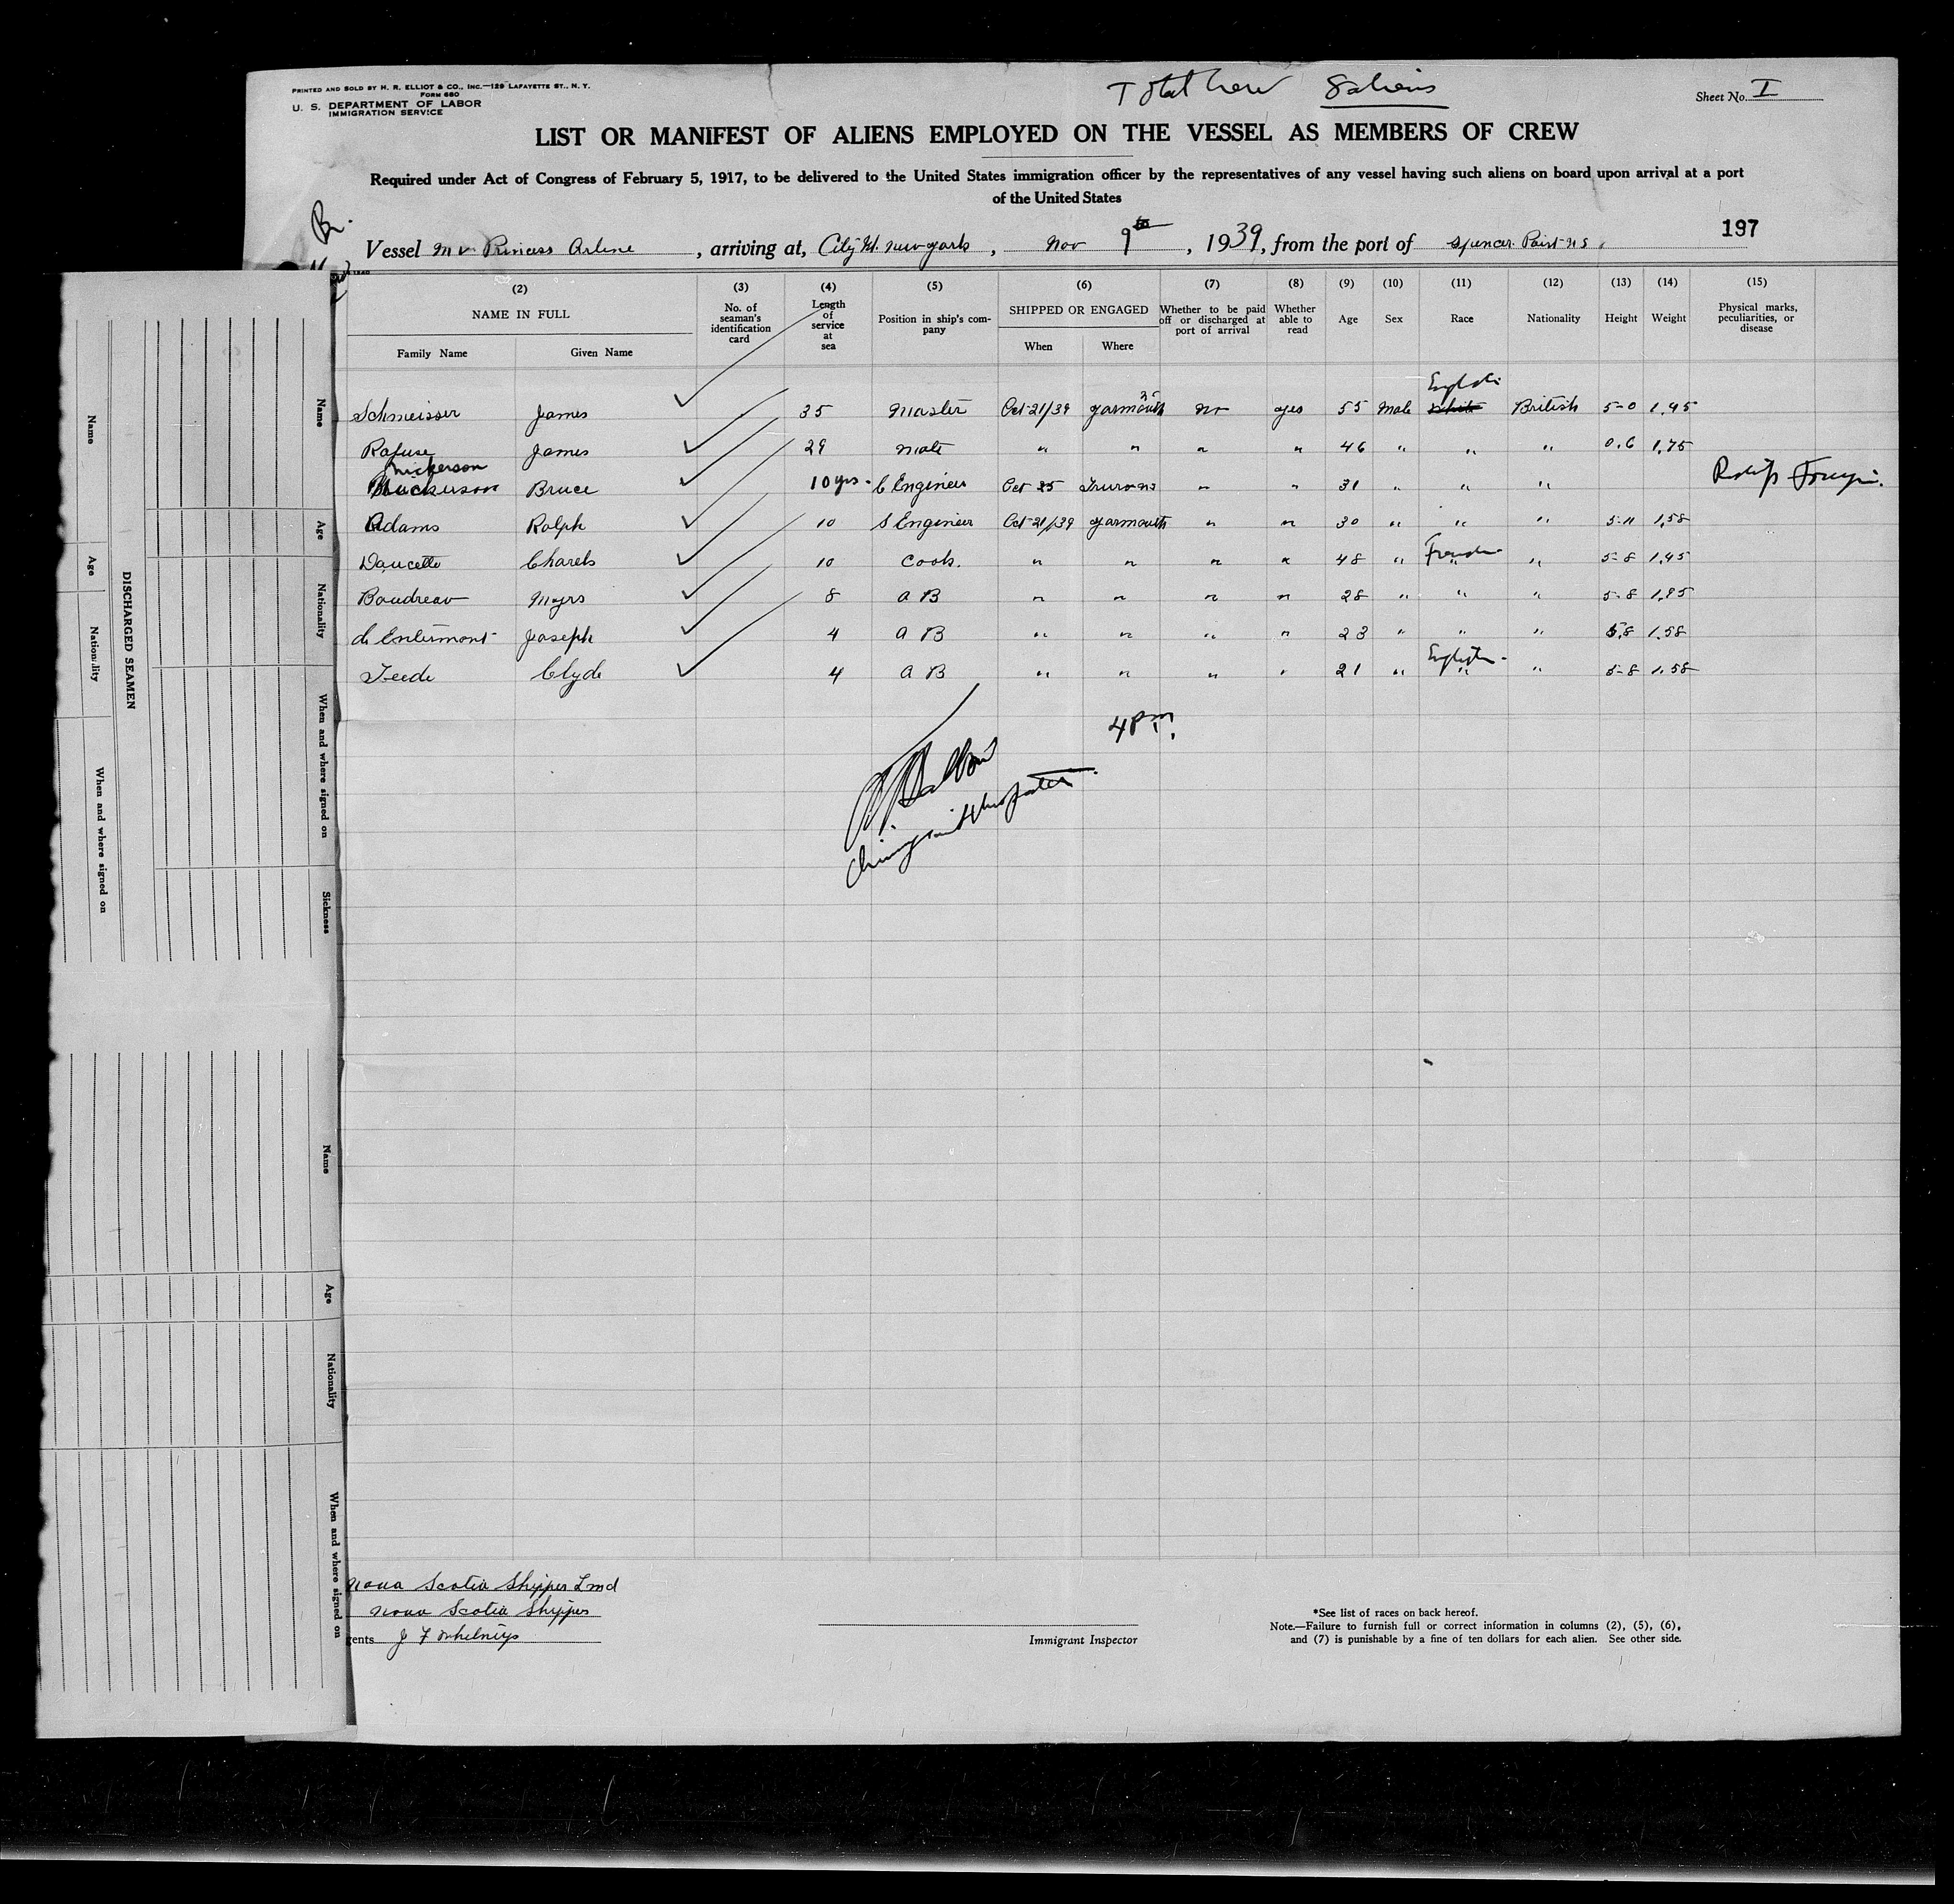 PRINTED AND SOLD BY H. R. ELLIOT & CO., INC.—129 LAFAYETTE ST., N. Y.
FORM 680
U. S. DEPARTMENT OF LABOR
IMMIGRATION SERVICE
Total Crew 8 aliens
Sheet No. I
LIST OR MANIFEST OF ALIENS EMPLOYED ON THE VESSEL AS MEMBERS OF CREW
Required under Act of Congress of February 5, 1917, to be delivered to the United States immigration officer by the representatives of any vessel having such aliens on board upon arrival at a port
of the United States
197
Br.
Vessel M v Princess Arlene, arriving at, City Isl. new york, Nov 9th, 1939, from the port of Spencer Point n s.
(2) (3) (4) (5) (6) (7) (8) (9) (10) (11) (12) (13) (14) (15)
NAME IN FULL
Family Name Given Name
No. of seaman's identification card
Length of service at sea
Position in ship's company
SHIPPED OR ENGAGED
When Where
Whether to be paid off or discharged at port of arrival
Whether able to read
Age
Sex
Race
Nationality
Height
Weight
Physical marks, peculiarities, or disease
English
Schmeisser James 35 Master Oct 21/39 Yarmouth no yes 55 Male White British 5-0 1.95
Rafuse James 29 Mate " " " " 46 " " " 0.6 1,75
Nickerson
Nickerson Bruce 10 yrs. C Engineer Oct 25 Truro ns " " 31 " " "
Adams Ralph 10 S Engineer Oct 21/39 Yarmouth " " 30 " " " 5-11 1,58
Doucette Charels 10 Cook. " " " " 48 " French " " 5-8 1,45
Boudreau Myrs 8 A B " " " " 28 " " " 5-8 1,85
de Entermont Joseph 4 A B " " " " 23 " " " 5,8 1,58
English
Teede Clyde 4 A B " " " " 21 " " " 5-8 1.58
4 Pm.
DISCHARGED SEAMEN
Name Age Nationality When and where signed on
Name Age Nationality When and where signed on Sickness
Name Age Nationality When and where signed on
Nova Scotia Shipper Lmd
Nova Scotia Shipper
gents J F Whelneys
Immigrant Inspector
*See list of races on back hereof.
Note.—Failure to furnish full or correct information in columns (2), (5), (6),
and (7) is punishable by a fine of ten dollars for each alien. See other side.